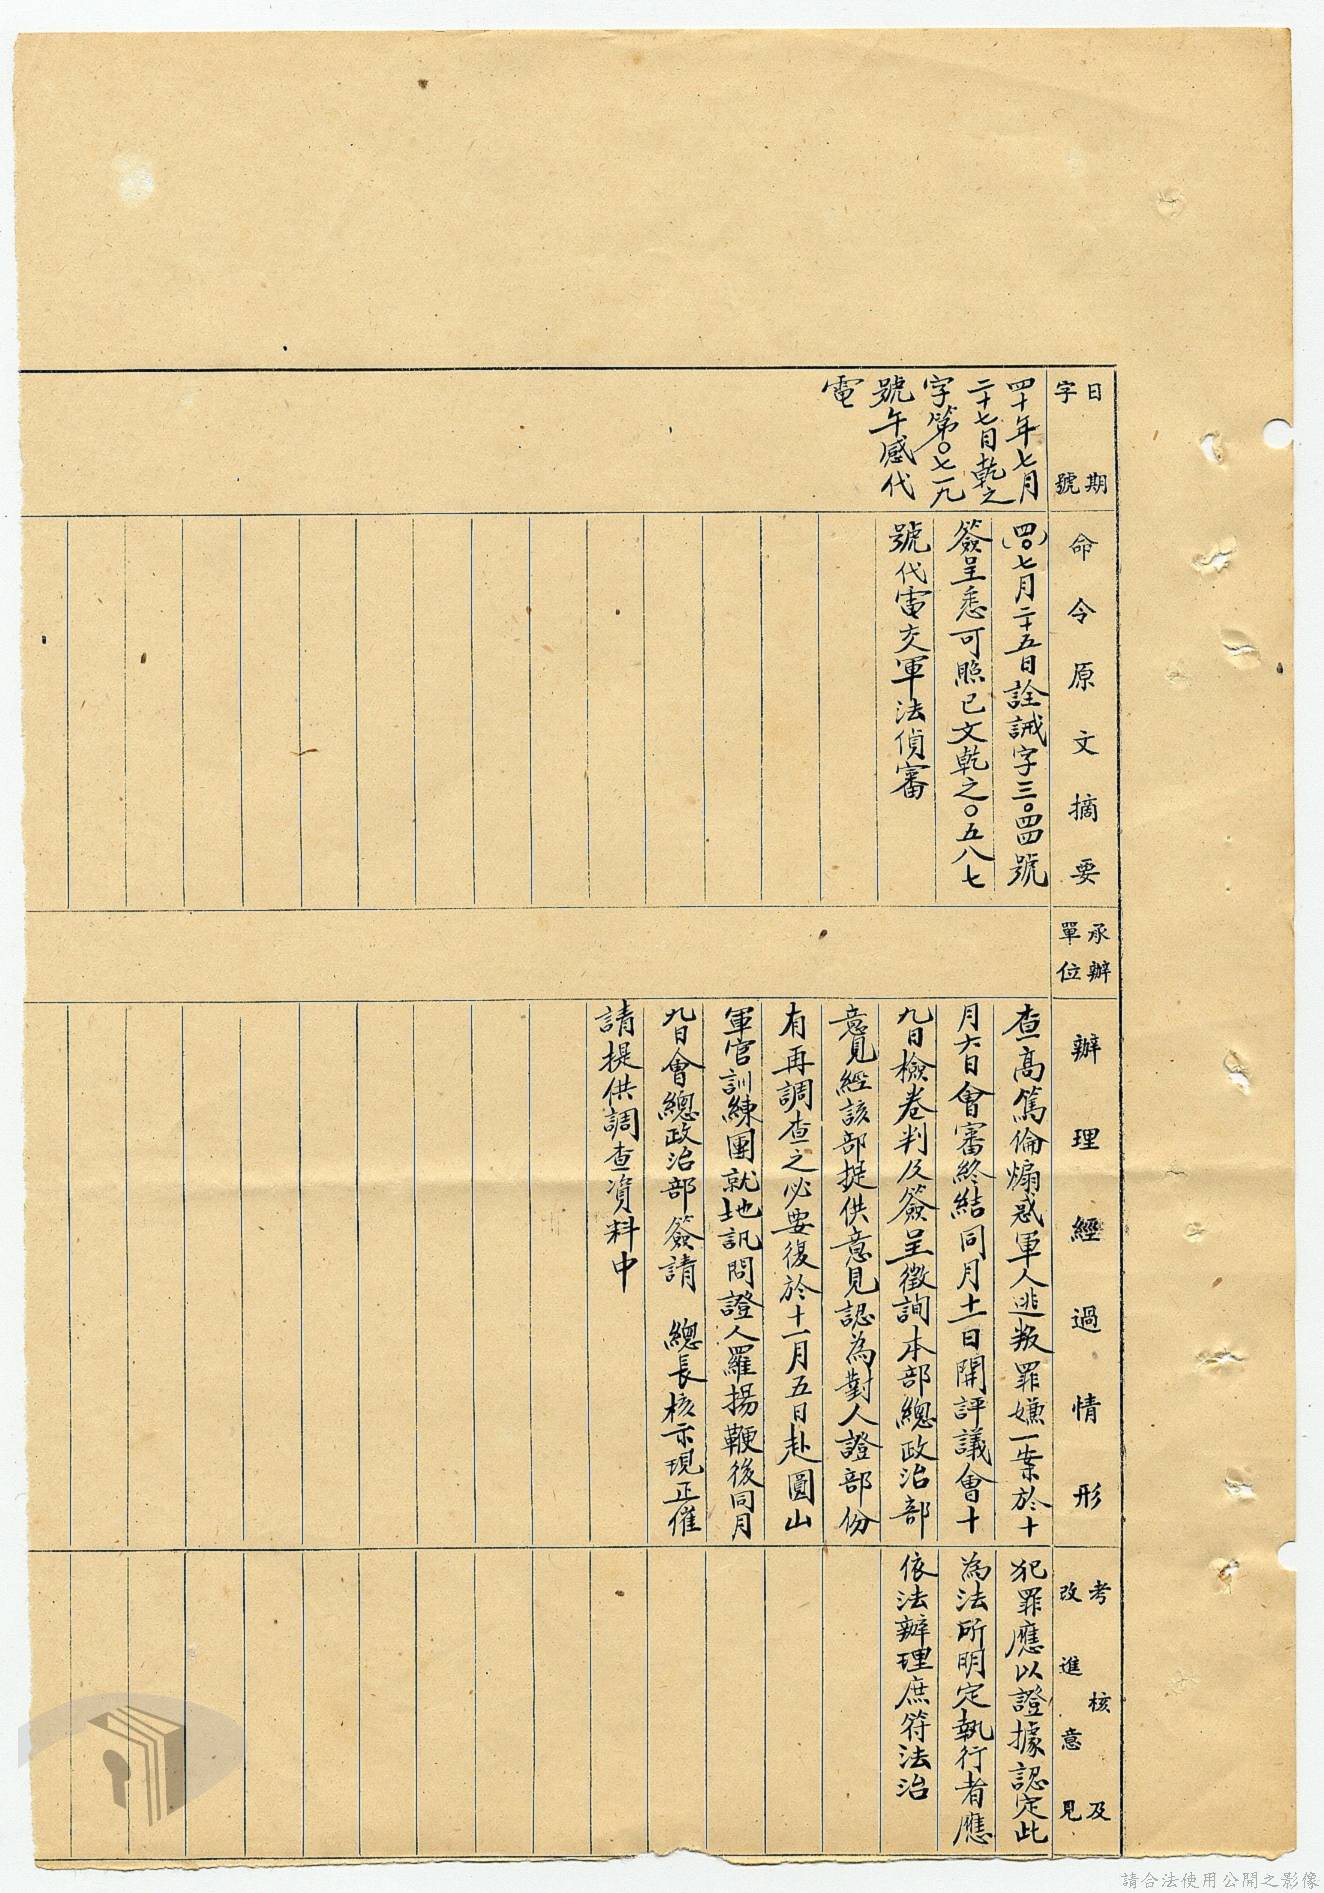 日期
字號
四十年七月
二十七日乾之
字第〇七一九
號午感代
電
命令原文摘要
(四〇)七月二十五日詮誡字三〇四四號
簽呈悉可照已文乾之〇五八七
號代電交軍法偵審
承辦
單位
辦理經過情形
查高篤倫煽惑軍人逃叛罪嫌一案於十
月六日會審終結同月十一日開評議會十
九日檢卷判及簽呈徵詢本部總政治部
意見經該部提供意見認為對人證部份
有再調查之必要復於十一月五日赴圓山
軍官訓練團就地訊問證人羅揚鞭後同月
九日會總政治部簽請 總長核示現正催
請提供調查資料中
考核及
改進意見
犯罪應以證據認定此
為法所明定執行者應
依法辦理庶符法治
請合法使用公開之影像